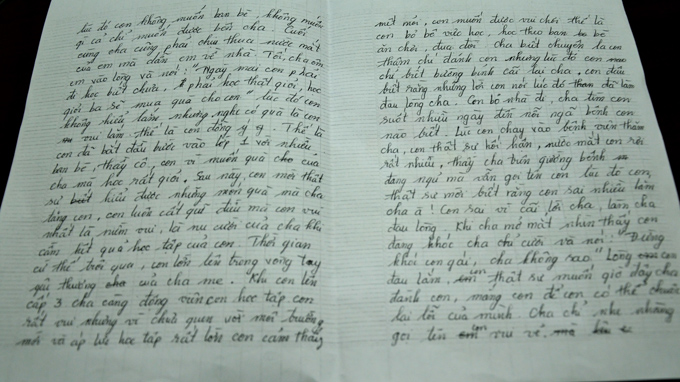 lúc đó con không muốn bạn bè, không muốn
gì cả chỉ muốn được bên cha. Cuối
cùng cha cũng phải chịu thua nước mắt
của em mà dẫn em về nhà. Tối, cha ôm
em vào lòng và nói: "Ngày mai con phải
đi học biết chưa. phải học thật giỏi, học
giỏi ba sẽ mua quà cho con" lúc đó con
không hiểu lắm, nhưng nghĩ có quà là con
vui lắm thế là con đồng ý. Thế là
con đã bắt đầu bước vào lớp 1 với nhiều
bạn bè, thầy cô, con vì muốn quà của
cha mà học rất giỏi. Sau này, con mới thật
sự hiểu được những món quà mà cha
tặng con, con luôn cất giữ đầu mà con vui
nhất là niềm vui, là nụ cười của cha khi
cầm kết quả học tập của con. Thời gian
cứ thế trôi qua, con lớn lên trong vòng tay
yêu thương của cha mẹ. Khi con lên
cấp 3 cha càng động viên con học tập con
rất vui nhưng vì chưa quen với môi trường
mới và áp lực học tập rất lớn con cảm thấy
mệt mỏi, con muốn được vui chơi thế là
con bỏ bê việc học, học theo bạn bè
ăn chơi, đua đòi cha biết chuyện la con
thậm chí đánh con nhưng lúc đó con
chỉ biết bướng bỉnh cãi lại cha, con đâu
biết rằng những lời con nói lúc đó đã làm
đau lòng cha. Con bỏ nhà đi, cha tìm con
suốt nhiều ngày đến nỗi ngã bệnh con
nào biết. Lúc con chạy vào bệnh viện thăm
cha, con thật sự hối hận, nước mắt con rơi
rất nhiều, thấy cha trên giường bệnh
đang ngủ mà vẫn gọi tên con lúc đó con
thật sự mới biết rằng con sai nhiều lắm
cha à! Con sai vì cãi lời cha, làm cha
đau lòng. Khi cha mở mắt nhìn thấy con
đang khóc cha chỉ cười và nói: "Đừng
khóc con gái, cha không sao" Lòng con
đau lắm, con thật sự muốn giờ đây cha
đánh con, mắng con để con có thể chuộc
lại lỗi của mình. Cha chỉ nhẹ nhàng
gọi tên con vui vẻ